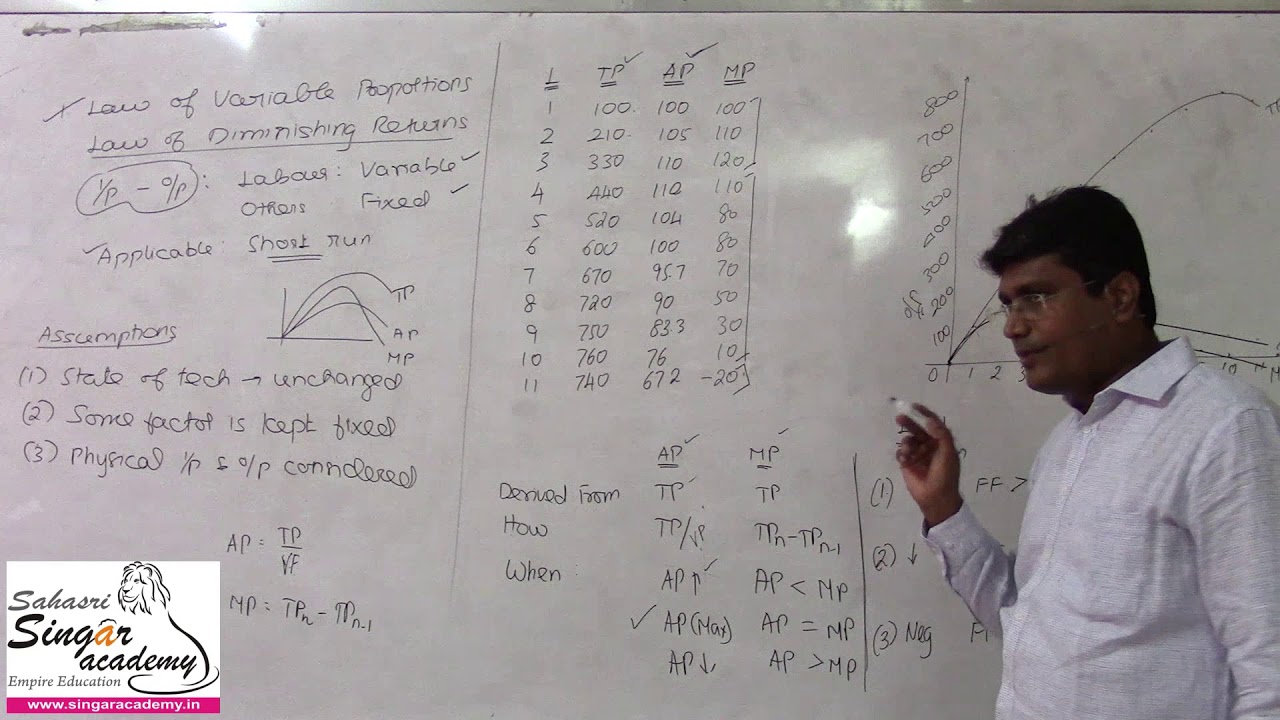 Law of Variable Propotions
Law of Diminishing Returns
I/P - O/P : Labour: Variable
Others Fixed
Applicable: Short run
TP
AP
MP
Asscemptions
(1) State of tech → unchanged
(2) Some factor is kept fixed
(3) Physical I/P & O/P considered
AP = TP/VF
MP = TPn - TPn-1
L TP AP MP
1 100 100 100
2 210 105 110
3 330 110 120
4 440 110 110
5 520 104 80
6 600 100 80
7 670 957 70
8 720 90 50
9 750 83.3 30
10 760 76 10
11 740 672 -20
AP MP
Derived From TP TP
How TPn-TPn-1
When: AP↑ AP < MP
AP(Max) AP = MP
AP↓ AP > MP
800
700
600
500
400
300
200
100
0 1 2 10 11
(1) FF >
(2) ↓
(3) Neg
Sahasri
Singâr
academy
Empire Education
www.singaracademy.in